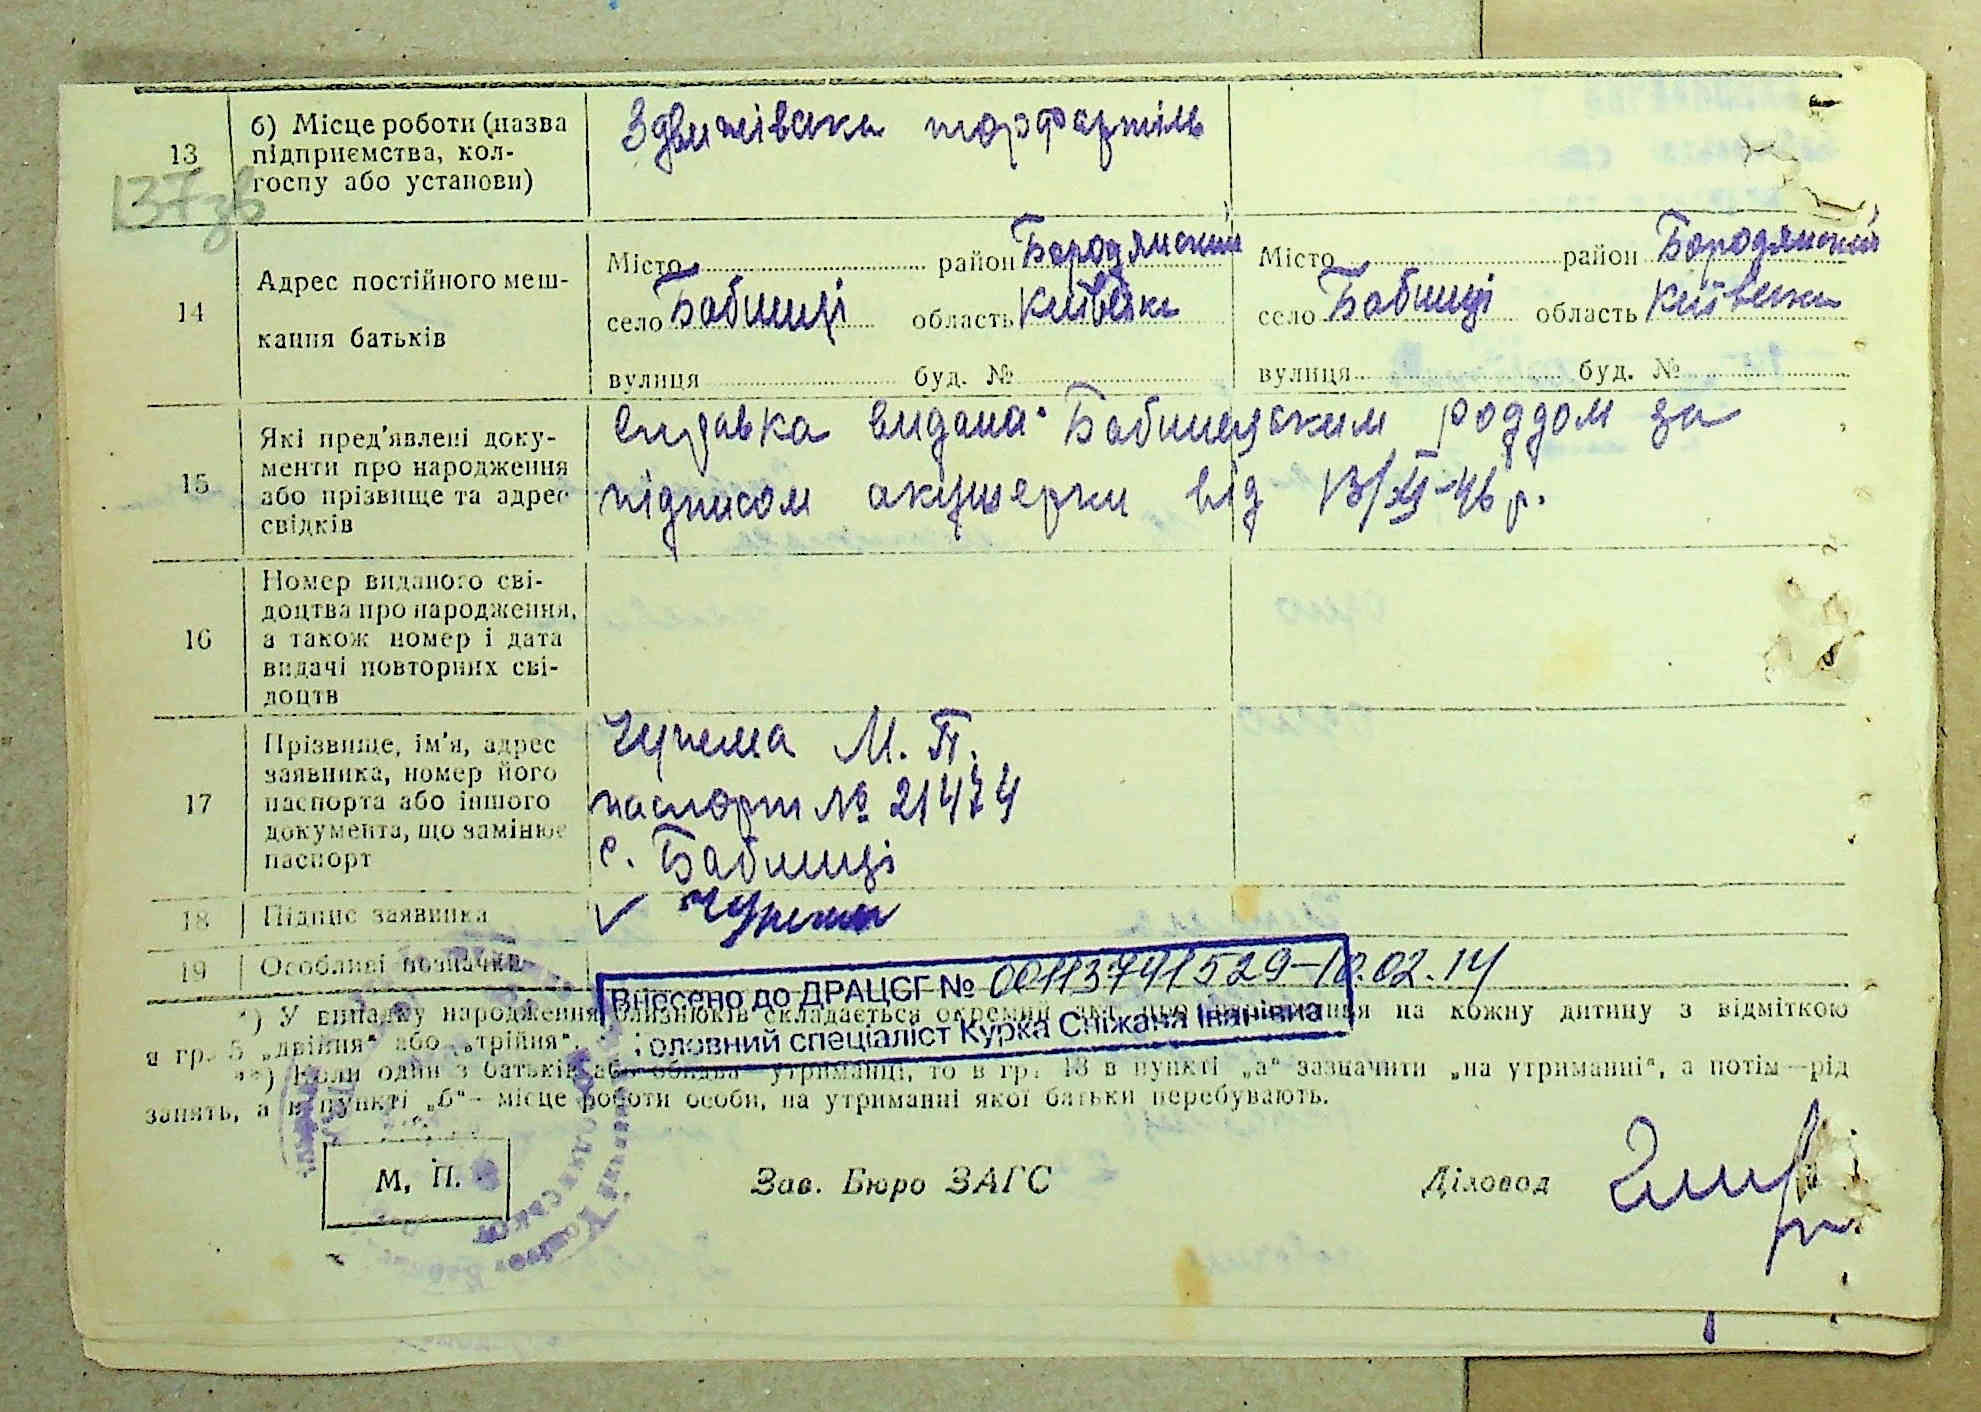 13 б) Місце роботи (назва підприємства, колгоспу або установи) Здвижівська торфартіль
137зв
14 Адрес постійного мешкання батьків
Місто район Бородянський Місто район Бородянський
село Бабинці область Київська село Бабинці область Київська
вулиця буд. № вулиця буд. №
15 Які пред'явлені документи про народження або прізвище та адрес свідків
Справка видана Бабинецьким роддом за
підписом акушерки від 13/XII-46 р.
16 Номер виданого свідоцтва про народження, а також номер і дата видачі повторних свідоцтв
17 Прізвище, ім'я, адрес заявника, номер його паспорта або іншого документа, що замінює паспорт
М. П.
паспорт № 21474
с. Бабинці
18 Підпис заявника ✓
19 Особливі позначки
Внесено до ДРАЦСГ № 00113741529-10.02.14
Головний спеціаліст Курка Сніжана Іванівна
*) У випадку народження близнюків складається окремий акт про народження на кожну дитину з відміткою
в гр. 5 „двійня“ або „трійня“.
**) Коли один з батьків або обидва утриманці, то в гр. 13 в пункті „а“ зазначити „на утриманні“, а потім—рід
занять, а в пункті „б“—місце роботи особи, на утриманні якої батьки перебувають.
М, П. Зав. Бюро ЗАГС Діловод